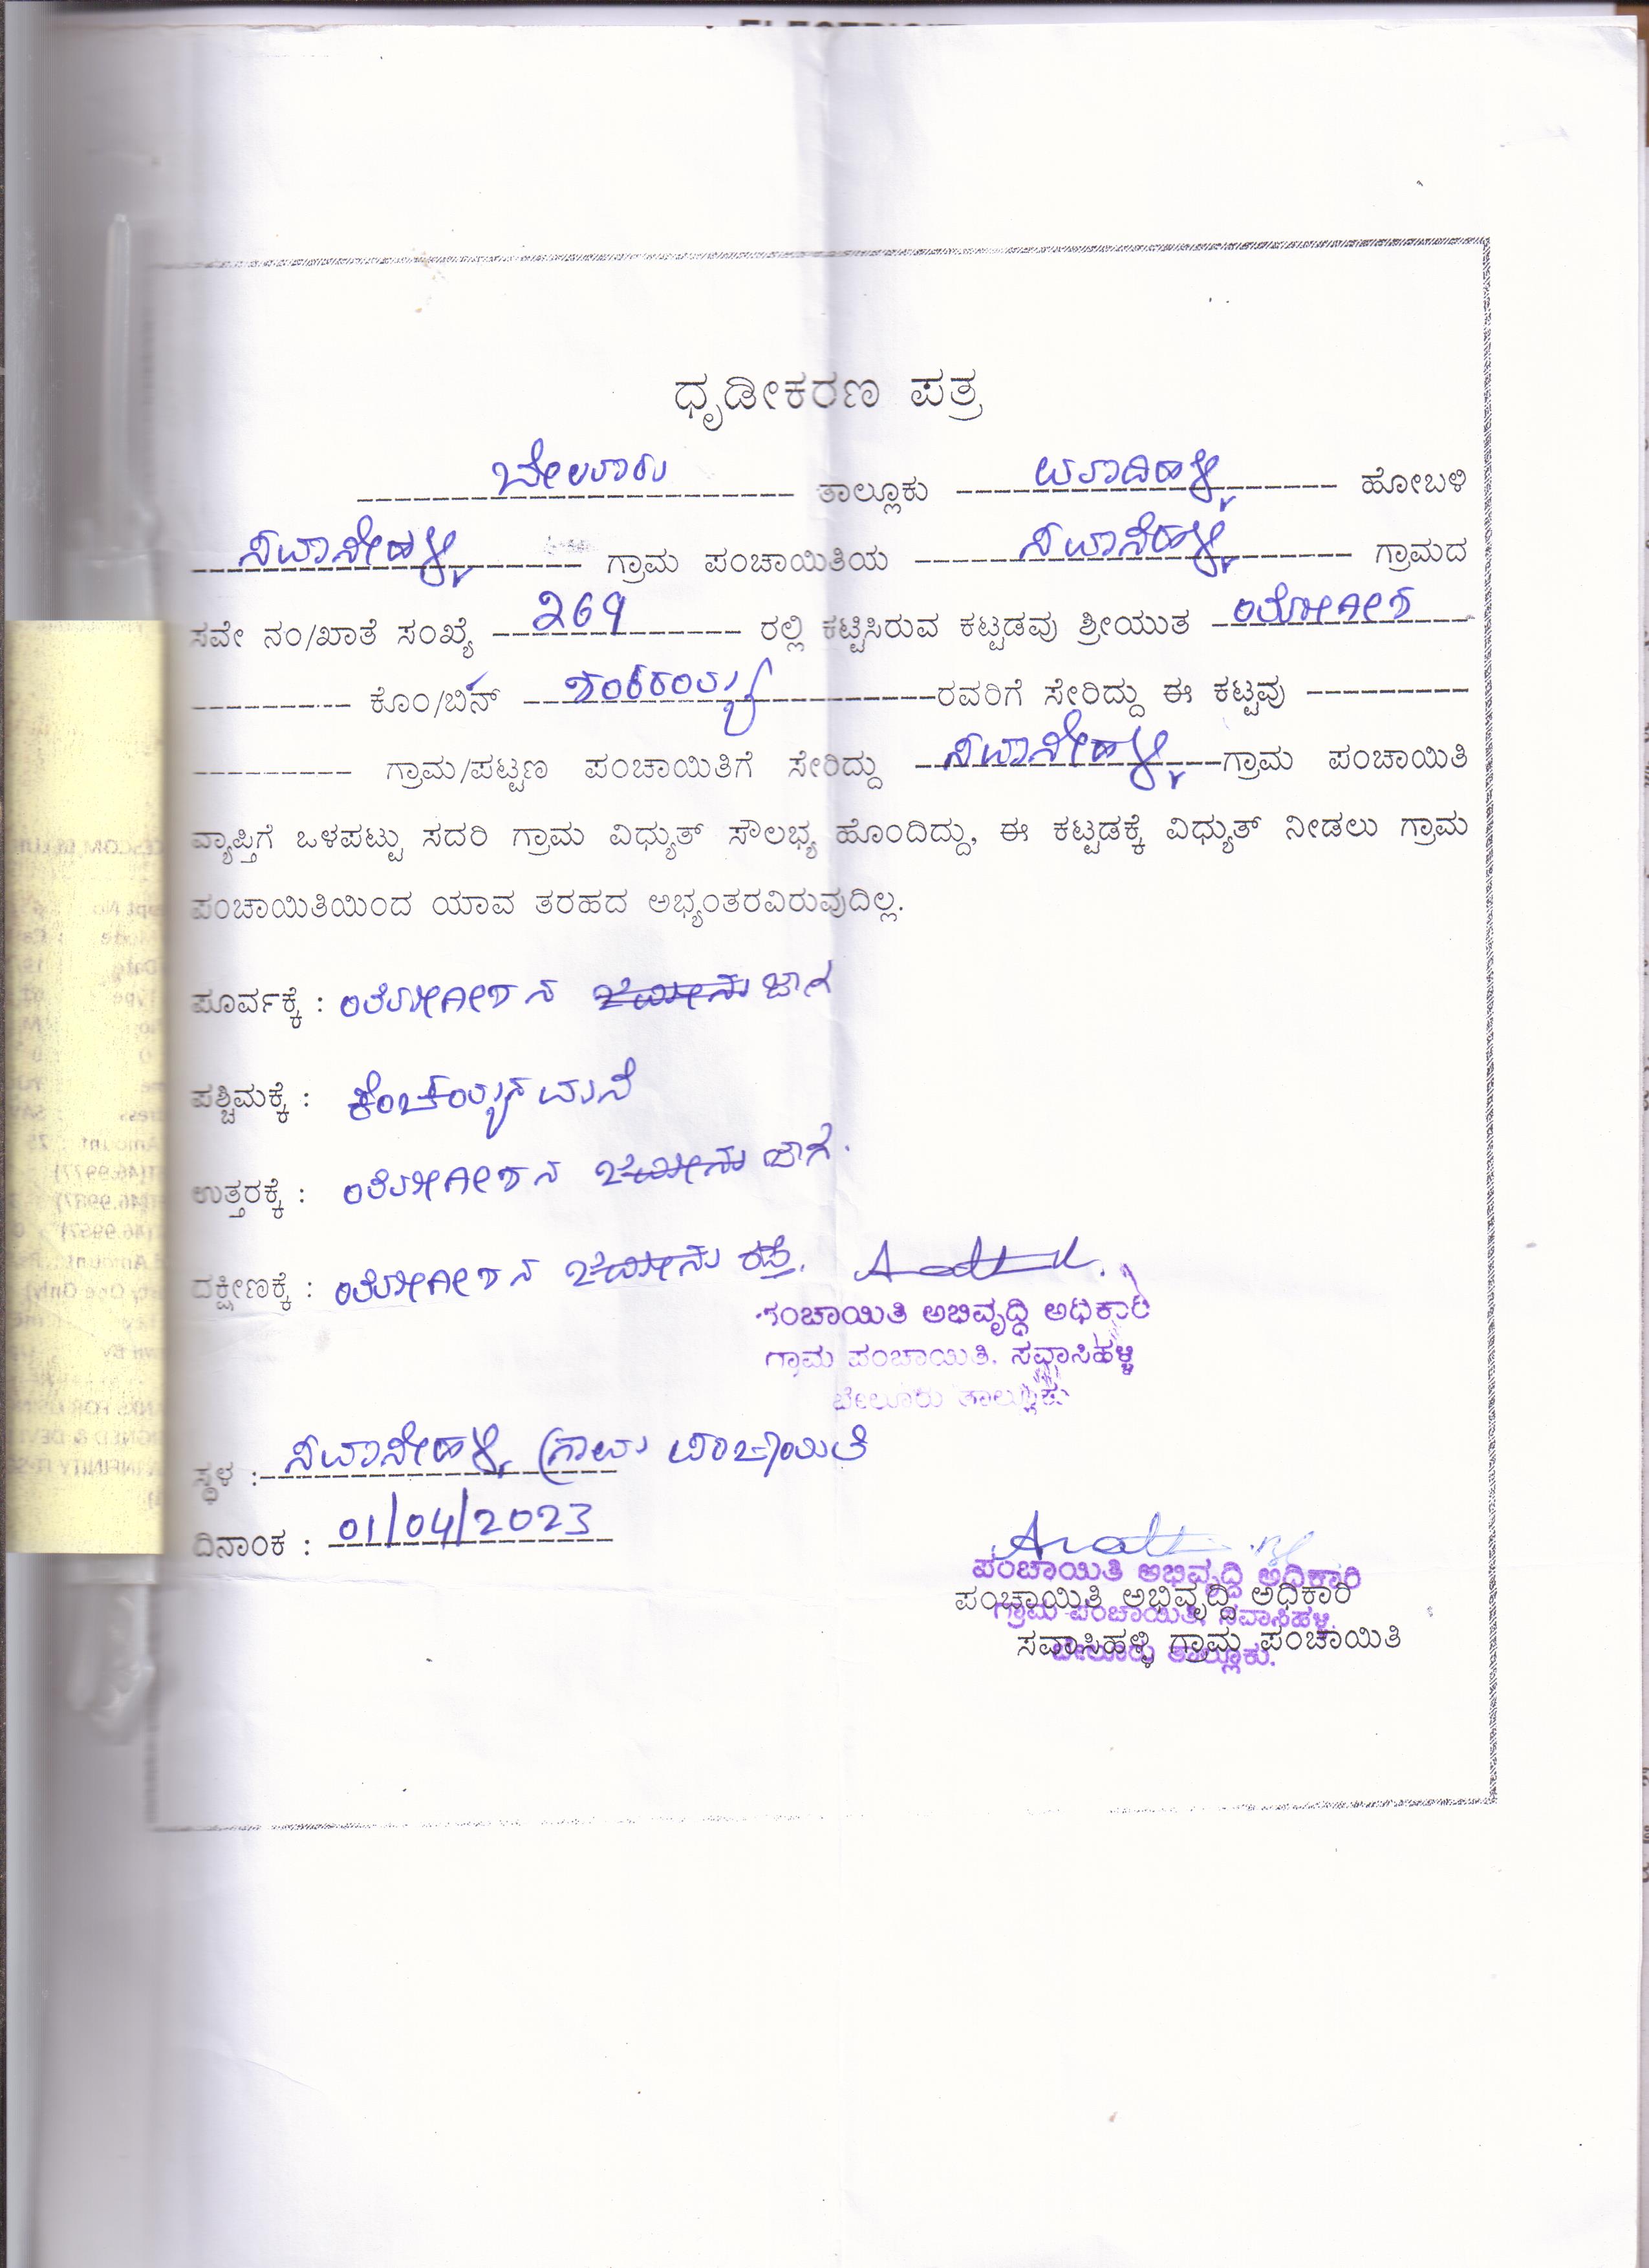 ಧೃಡೀಕರಣ ಪತ್ರ
ಬೇಲೂರು ತಾಲ್ಲೂಕು ಮಾದಿಹಳ್ಳಿ ಹೋಬಳಿ
ಸವಾಸಿಹಳ್ಳಿ ಗ್ರಾಮ ಪಂಚಾಯಿತಿಯ ಸವಾಸಿಹಳ್ಳಿ ಗ್ರಾಮದ
ಸವೇ ನಂ/ಖಾತೆ ಸಂಖ್ಯೆ 269 ರಲ್ಲಿ ಕಟ್ಟಿಸಿರುವ ಕಟ್ಟಡವು ಶ್ರೀಯುತ ಯೋಗೀಶ
ಕೊಂ/ಬಿನ್ ಶಂಕರಯ್ಯ ರವರಿಗೆ ಸೇರಿದ್ದು ಈ ಕಟ್ಟವು
ಗ್ರಾಮ/ಪಟ್ಟಣ ಪಂಚಾಯಿತಿಗೆ ಸೇರಿದ್ದು ಸವಾಸಿಹಳ್ಳಿ ಗ್ರಾಮ ಪಂಚಾಯಿತಿ
ವ್ಯಾಪ್ತಿಗೆ ಒಳಪಟ್ಟು ಸದರಿ ಗ್ರಾಮ ವಿಧ್ಯುತ್ ಸೌಲಭ್ಯ ಹೊಂದಿದ್ದು, ಈ ಕಟ್ಟಡಕ್ಕೆ ವಿಧ್ಯುತ್ ನೀಡಲು ಗ್ರಾಮ
ಪಂಚಾಯಿತಿಯಿಂದ ಯಾವ ತರಹದ ಅಭ್ಯಂತರವಿರುವುದಿಲ್ಲ.
ಪೂರ್ವಕ್ಕೆ : ಯೋಗೀಶನ ಜಮೀನು ಜಾಗ
ಪಶ್ಚಿಮಕ್ಕೆ : ಕೆಂಚಯ್ಯನ ಮನೆ
ಉತ್ತರಕ್ಕೆ : ಯೋಗೀಶನ ಜಮೀನು ಜಾಗ.
ದಕ್ಷೀಣಕ್ಕೆ : ಯೋಗೀಶನ ಜಮೀನು ರಸ್ತೆ.
ಪಂಚಾಯಿತಿ ಅಭಿವೃದ್ಧಿ ಅಧಿಕಾರಿ
ಗ್ರಾಮ ಪಂಚಾಯಿತಿ. ಸವಾಸಿಹಳ್ಳಿ
ಬೇಲೂರು ತಾಲ್ಲೂಕು
ಸ್ಥಳ : ಸವಾಸಿಹಳ್ಳಿ ಗ್ರಾಮ ಪಂಚಾಯಿತಿ
ದಿನಾಂಕ : 01/04/2023
ಪಂಚಾಯಿತಿ ಅಭಿವೃದ್ಧಿ ಅಧಿಕಾರಿ
ಪಂಚಾಯಿತಿ ಅಭಿವೃದ್ಧಿ ಅಧಿಕಾರಿ
ಗ್ರಾಮ ಪಂಚಾಯಿತಿ, ಸವಾಸಿಹಳ್ಳಿ
ಸವಾಸಿಹಳ್ಳಿ ಗ್ರಾಮ ಪಂಚಾಯಿತಿ
ಬೇಲೂರು ತಾಲ್ಲೂಕು.